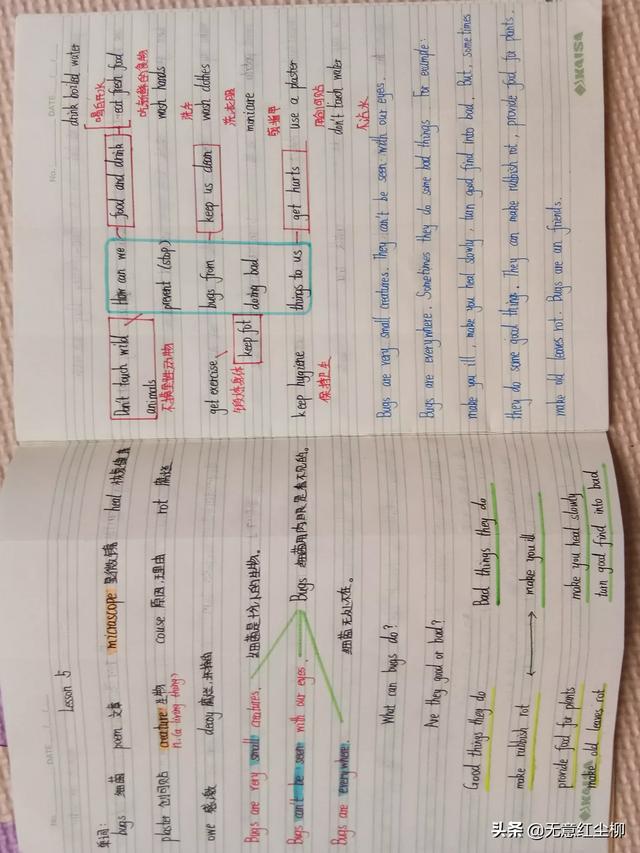 No.
DATE
Lesson 5
单词:
bugs 细菌 poem 文章 microscope 显微镜 heal 恢复健康
plaster 创可贴 creature 生物 cause 原因,理由 rot 腐烂
n.(a living thing)
owe 感激 decay 腐烂
Bugs are very small creatures. 细菌是十分小的生物。
Bugs can't be seen with our eyes. Bugs 细菌用肉眼是看不见的。
Bugs are everywhere. 细菌无处不在。
What can bugs do?
Are they good or bad?
Good things they do Bad things they do
make rubbish rot make you ill
provide food for plants make you head slowly
make old leaves rot turn good find into bad
No.
DATE
drink boiled water
喝白开水
Don't touch wild How can we food and drink eat fresh food
animals prevent (stop) 吃新鲜的食物
不摸野生动物 wash hands
洗手
get exercise bugs from keep us clean wash clothes
锻炼身体 keep fit doing bad 洗衣服
manicure
keep hygiene things to us get hurts use a plaster
保持卫生 用创可贴
don't touch water
不沾水
Bugs are very small creatures. They can't be seen with our eyes.
Bugs are everywhere. Sometimes they do some bad things. For example:
make you ill, make you heal slowly, turn good find into bad. But, sometimes
they do some good thing. They can make rubbish rot, provide food for plants.
make old leaves rot. Bugs are an friends.
头条 @无意红尘柳